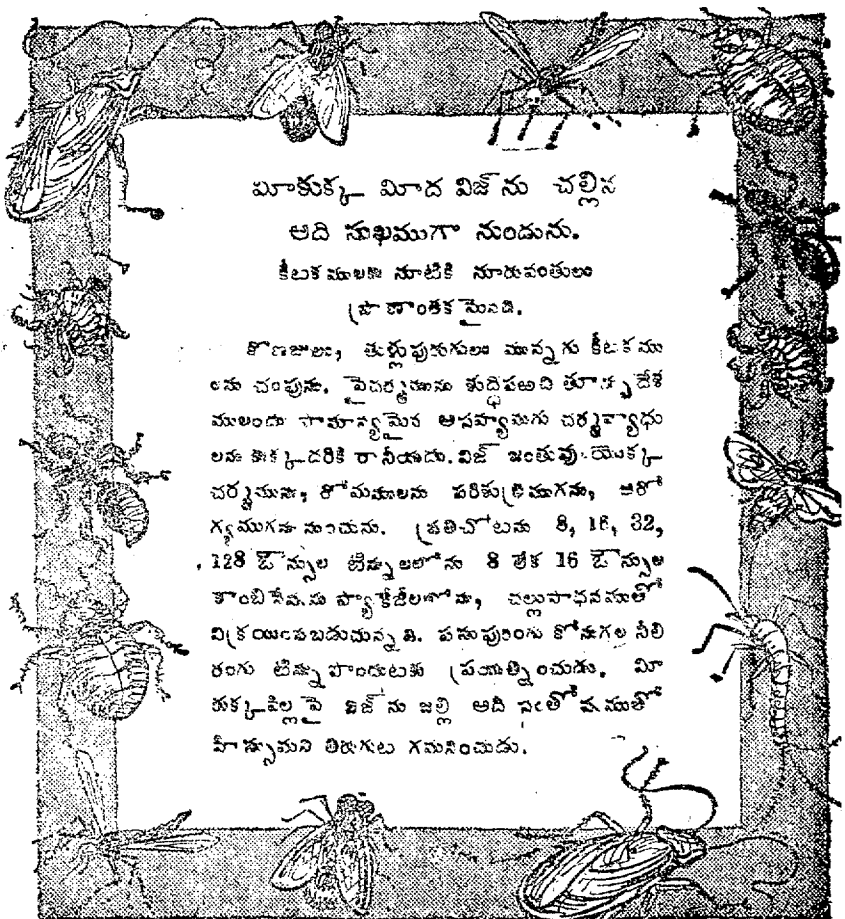 మీకుక్క మీద విజ్‌ను చల్లిన
అది సుఖముగా నుండును.
కీటకములకు నూటికి నూరువంతులు
ప్రాణాంతకమైనది.
కోణజులు, తుళ్లుపురుగులు మున్నగు కీటకము
లను చంపును. పైచర్మమును శుద్ధిపఱచి తూర్పుదేశ
ములందు సామాన్యమైన అసహ్యమగు చర్మవ్యాధు
లను కుక్కదరికి రానీయదు. విజ్ జంతువుయొక్క
చర్మమును, రోమములను పరిశుభ్రముగను, ఆరో
గ్యముగను నుంచును. ప్రతిచోటను 8, 16, 32,
128 ఔన్సుల టిన్నులలోను 8 లేక 16 ఔన్సుల
కాంబినేషను ప్యాకేజీలలోను, చల్లుసాధనముతో
విక్రయింపబడుచున్నవి. పసుపురంగు కోనుగల నీలి
రంగు టిన్ను పొందుటకు ప్రయత్నించుడు. మీ
కుక్కపిల్లపై విజ్‌ను జల్లి అది సంతోషముతో
హీస్సుమని తిరుగుట గమనించుడు.